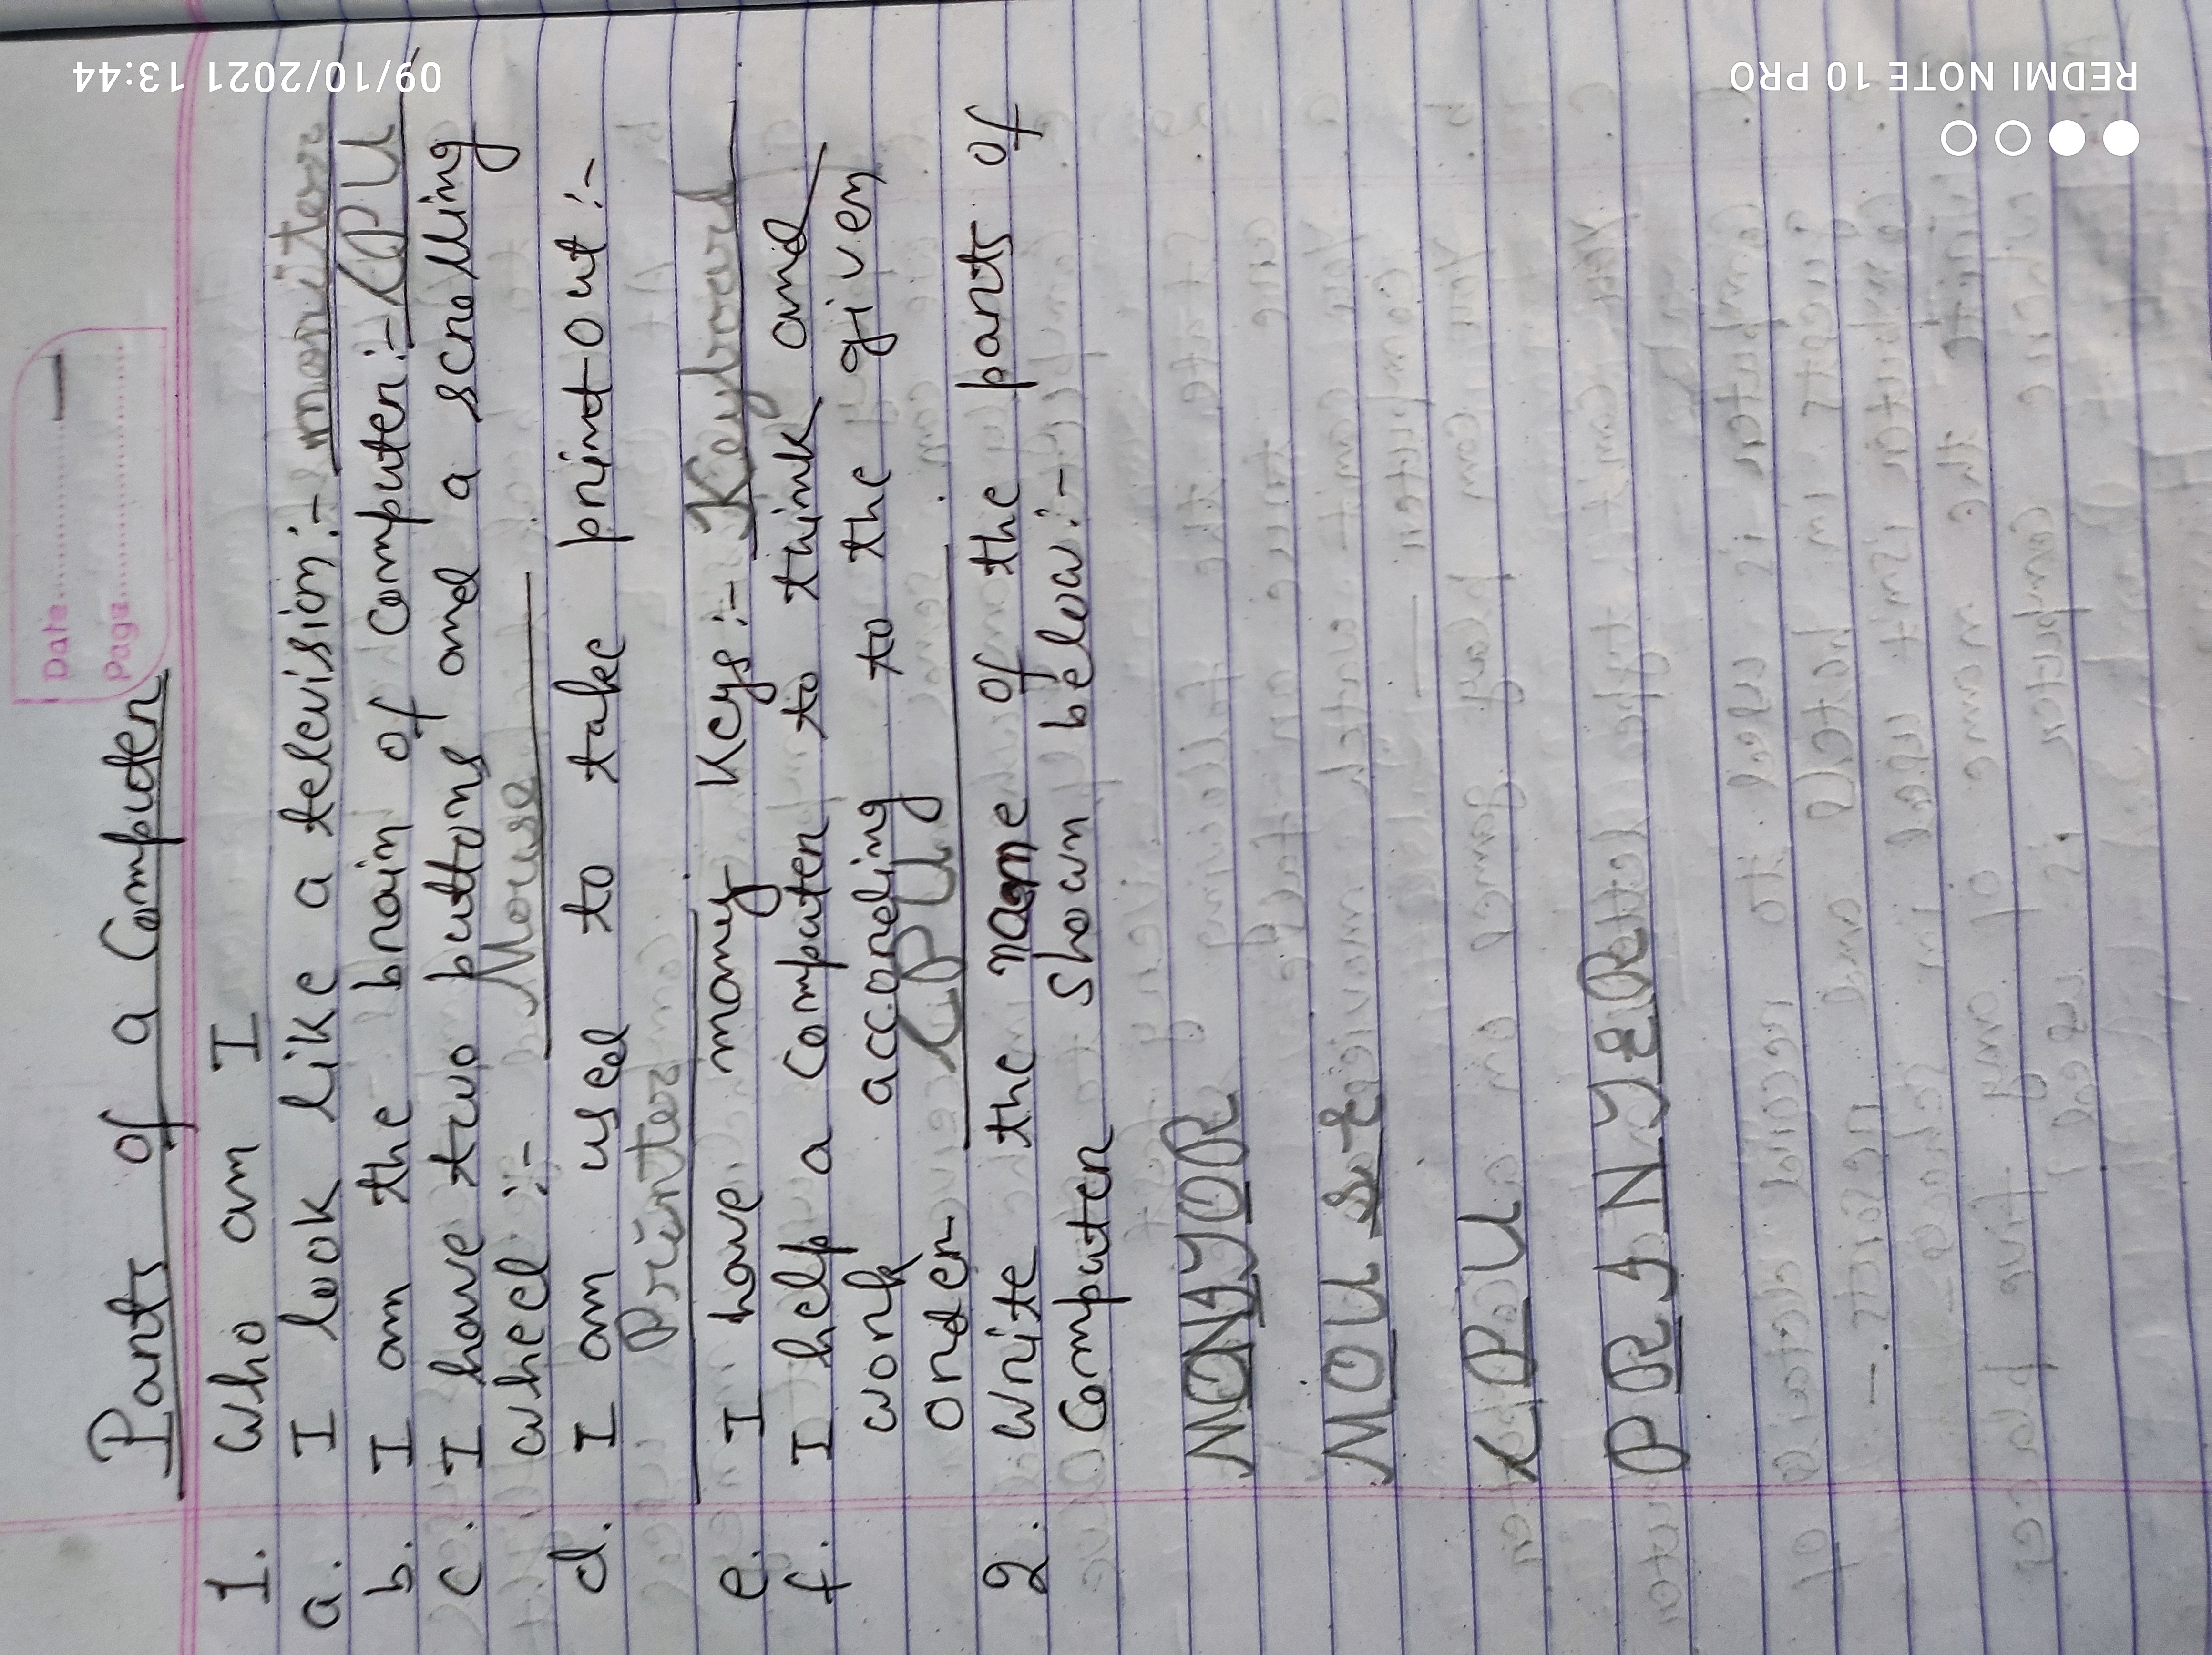 Date.............
Page.............
Parts of a Computer
1. Who am I
a. I look like a television:- monitor
b. I am the brain of Computer:- CPU
c. I have two buttons and a scrolling
wheel :- Mouse
d. I am used to take print out :-
Printer
e. I have many Keys :- Keyboard
f. I help a Computer to think and
work according to the given
order CPU
2. Write the name of the parts of
Computer shown below :-
MONITOR
MOUSE
CPU
PRINTER
REDMI NOTE 10 PRO
09/10/2021 13:44